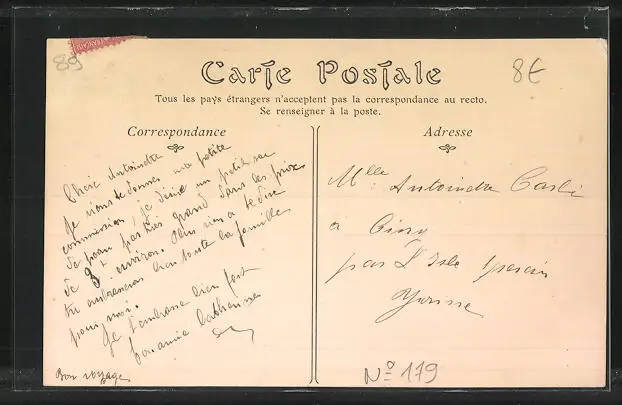 89
8€
Carte Postale
Tous les pays étrangers n'acceptent pas la correspondance au recto.
Se renseigner à la poste.
Correspondance
Adresse
Chère Antoinette
Je viens de donner une petite
commission, je désire un petit sac
de peau pas très grand dans les prix
de 3f environ. Plus rien a te dire
tu embrasseras bien toute la famille
pour moi.
Je t'embrasse bien fort
Ton amie Catherine
Bon voyage
Mlle Antoinette
à
par L'Isle
No 179